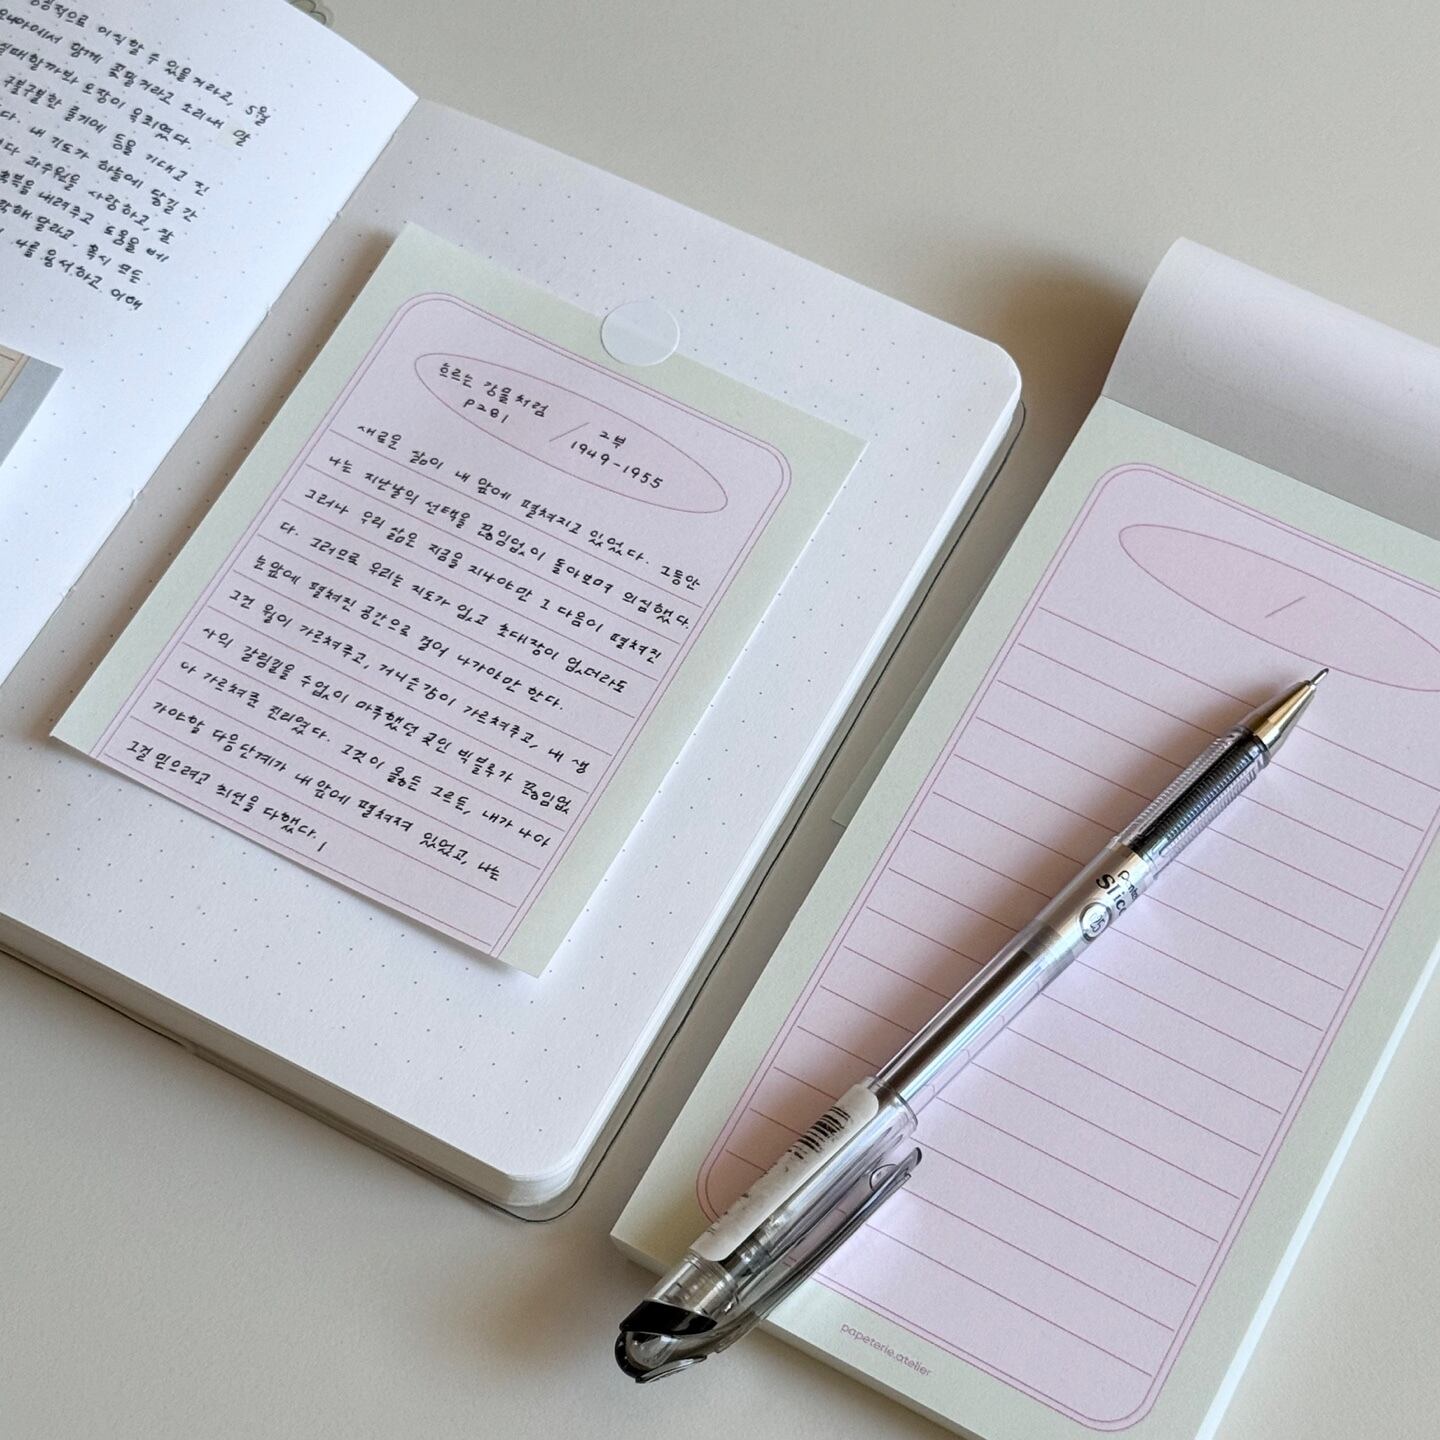 경적으로 이직할 수 있을거라고, 5월
함께 꽃필거라고 소리내 말
오장이 옥죄였다.
구불구불한 줄기에 등을 기대고 진
다. 내 기도가 하늘에 닿길 간
과수원을 사랑하고, 잘
축복을 내려주고 도움을 베
해 달라고, 혹시 모든
나를 용서하고 이해
흐르는 강물처럼
P281
/
2부
1949-1955
새로운 삶이 내 앞에 펼쳐지고 있었다. 그동안
나는 지난날의 선택을 끊임없이 돌아보며 의심했다.
그러나 우리 삶은 지금을 지나야만 그 다음이 펼쳐진
다. 그러므로 우리는 지도가 없고 초대장이 없더라도
눈앞에 펼쳐진 공간으로 걸어 나가야만 한다.
그건 윌이 가르쳐주고, 거니슨강이 가르쳐주고, 내 생
사의 갈림길을 수없이 마주했던 곳인 빅블루가 끊임없
이 가르쳐준 진리였다. 그것이 옳든 그르든, 내가 나아
가야할 다음단계가 내 앞에 펼쳐져 있었고, 나는
그걸 믿으려고 최선을 다했다.
/
Pentel
Slicci
025
papeterie.atelier